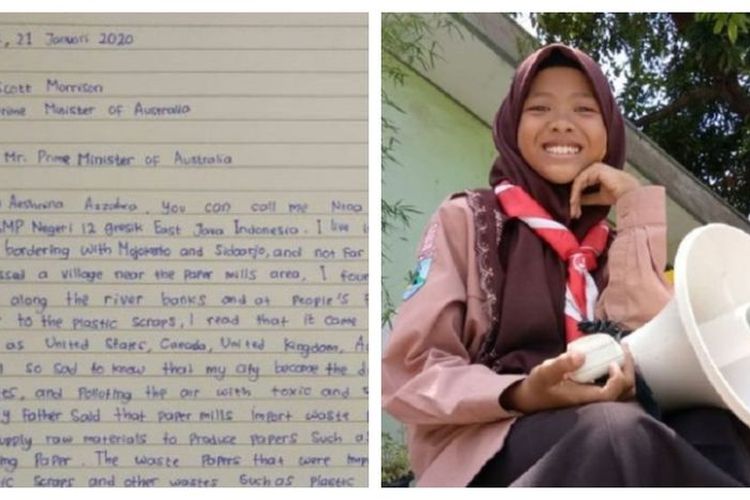 , 21 Januari 2020
Scott Morrison
Prime Minister of Australia
Mr. Prime Minister of Australia
Aeshnina Azzahra. You can call me Nina
SMP Negeri 12 gresik East Java Indonesia. I live
bordering with Mojokerto and Sidoarjo, and not far
a village near the paper mills area, I
along the river banks and at people's
to the plastic scraps, I read that it came
as United States, Canada, United Kingdom,
so sad to know that my city become the
and Polloting the air with toxic and
Father said that paper mills import waste
raw materials to produce papers such
Paper. The waste Papers that were
scraps and other wastes such as plastic